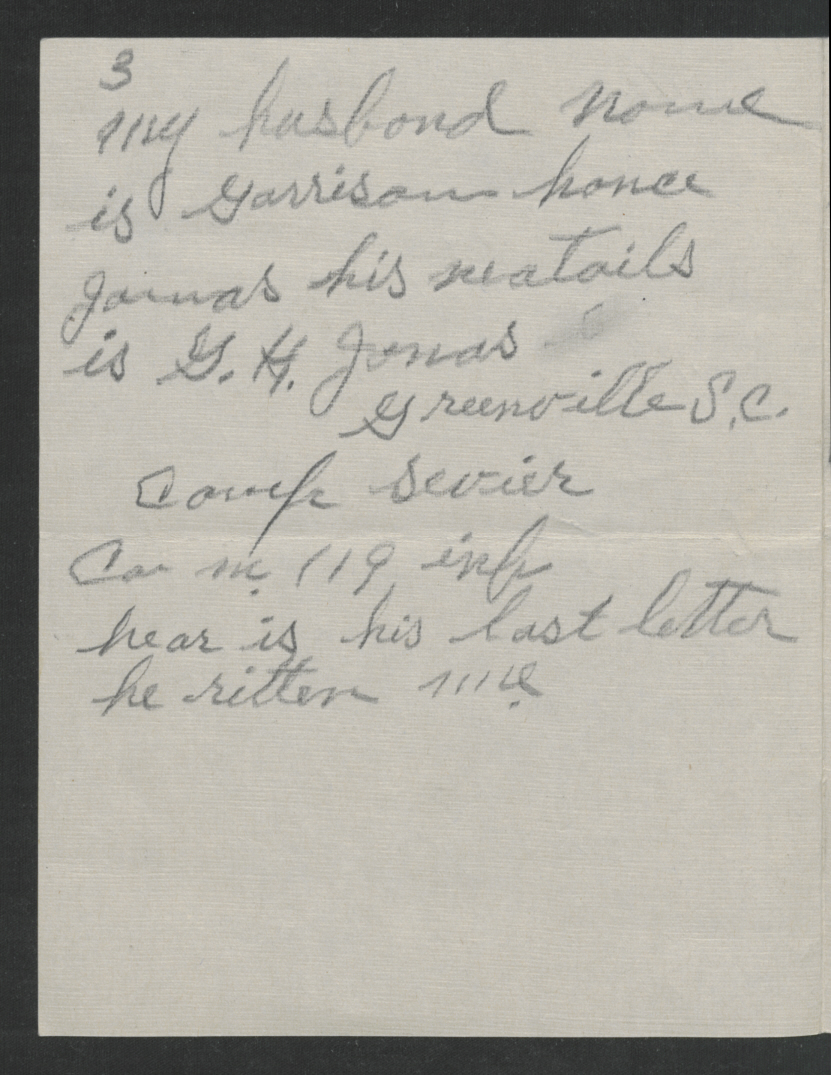 3
my husbond nome
is Garrison honce
Jomas his neatails
is G. H. Jonas
Greenville S.C.
Comp Sevier
Co m. 119 inf
hear is his last letter
he ritten me.